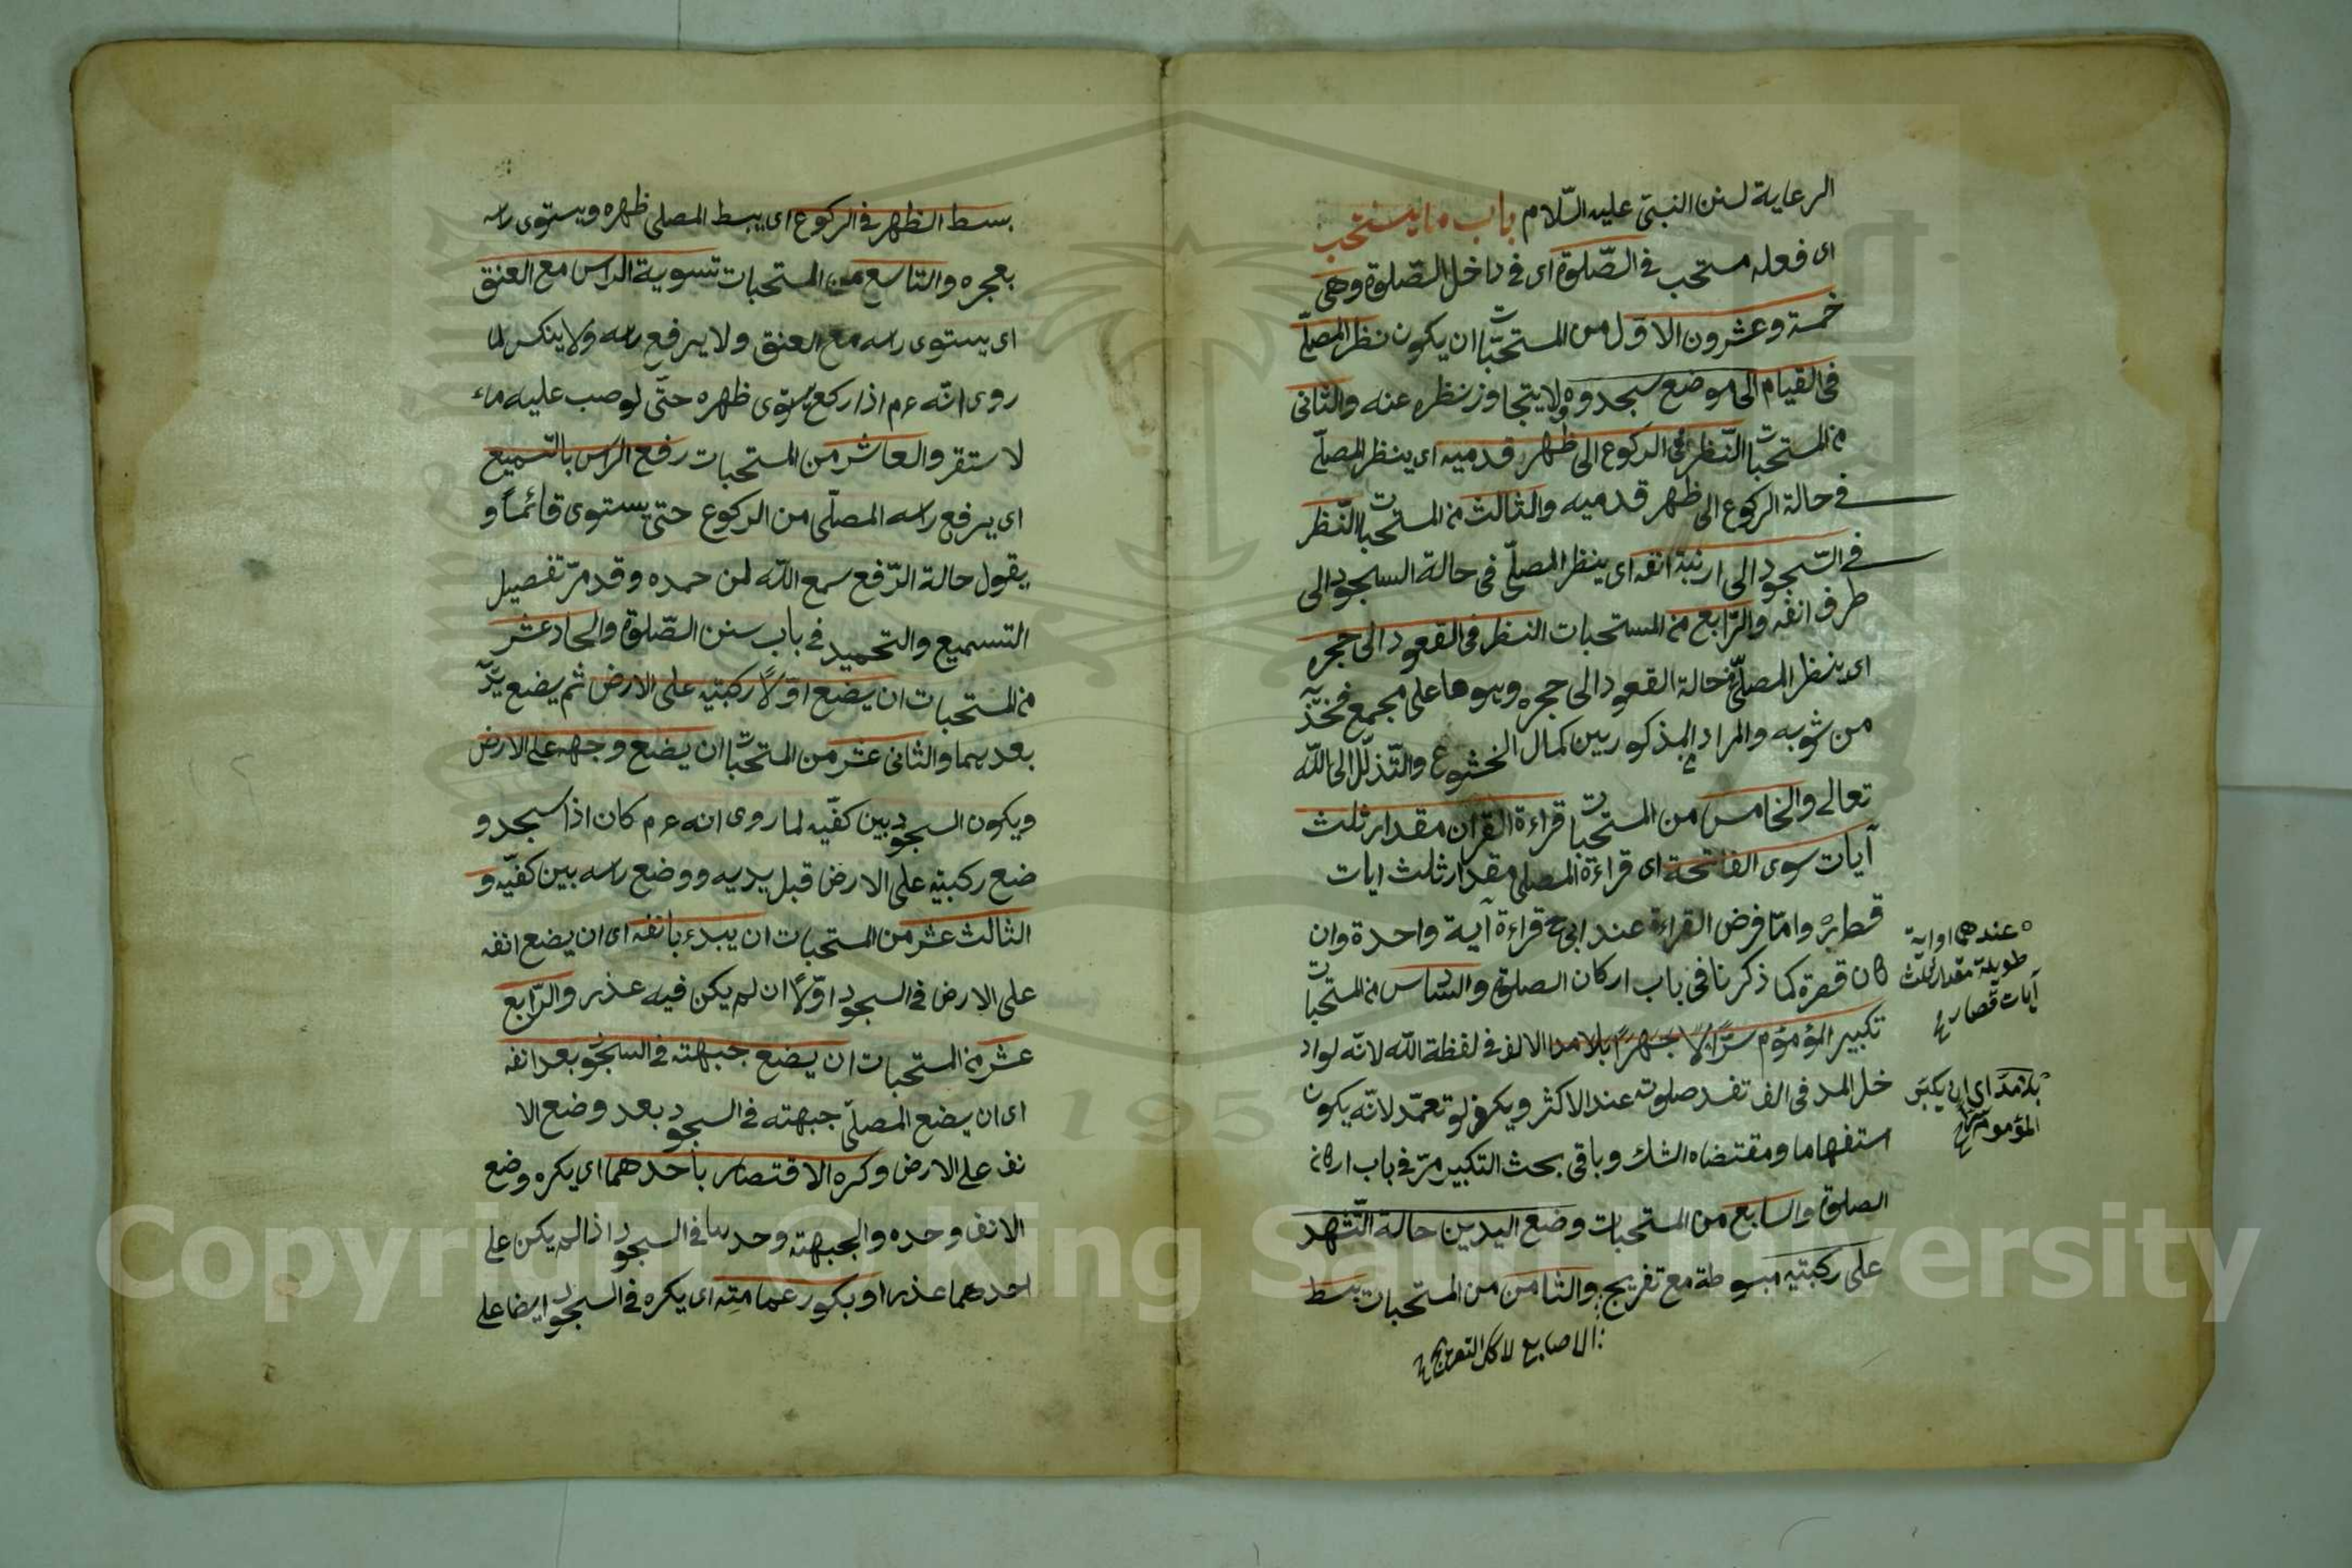 الرعاية لسنن النبىّ عليه السّلام باب ما يستحبّ
اى فعله مستحب فى الصّلوة اى فى داخل الصّلوة وهى
خمسة وعشرون الاوّل من المستحبّات ان يكون نظر المصلّى
فى القيام الى موضع سجدوه ولا يتجاوز نظره عنه والثانى
من المستحبات النّظر فى الركوع الى ظهر قدميه اى ينظر المصلّى
فى حالة الركوع الى ظهر قدميه والثالث من المستحبات النّظر
فى السّجود الى ارنبة انفه اى ينظر المصلّى فى حالة السجود الى
طرف انفه والرّابع من المستحبات النظر فى القعود الى حجره
اى ينظر المصلّى فى حالة القعود الى حجره وهو ما على مجمع فخذيه
من ثوبه والمراد المذكورين كمال الخشوع والتّذلّل الى اللّه
تعالى والخامس من المستحبات قراءة القرآن مقدار ثلث
آيات سوى الفاتحة اى قراءة المصلى مقدار ثلث ايات
وامّا فرض القراءة عند ابى ح قراءة آية واحدة وان
كان قصرة كما ذكرنا فى باب اركان الصلوة والسّادس من المستحبات
تكبير المؤموم سرًّا لا جهرًا بلا مدا الالف فى لفظة اللّه لانّه لواد
خل المد فى الف تفسد صلوته عند الاكثر ويكفر لو تعمّد لانّه يكون
استفهاما ومقتضاه الشك وباقى بحث التكبير مرّ فى باب اركان
الصلوة والسابع من المستحبات وضع اليدين حالة التّشهد
على ركبتيه مبسوطة مع تفريج والثامن من المستحبات بسط
الاصابع لا كل التفريج
عندهما او اية
طويلة مقدار ثلث
آيات قصار
بلا مدّ اى ان يكبّر
المؤموم سرّا
بسط الظهر فى الركوع اى يبسط المصلى ظهره ويستوى راسه
بعجزه والتاسع من المستحبات تسوية الراس مع العنق
اى يستوى راسه مع العنق ولا يرفع راسه ولا ينكس لما
روى انّه عم اذا ركع يستوى ظهره حتّى لو صب عليه ماء
لاستقر والعاشر من المستحبات رفع الراس بالتسميع
اى يرفع راسه المصلّى من الركوع حتى يستوى قائمًا و
يقول حالة الرّفع سمع اللّه لمن حمده وقد مرّ تفصيل
التسميع والتحميد فى باب سنن الصّلوة والحاد عشر
من المستحبات ان يضع اوّلًا ركبتيه على الارض ثم يضع يديه
بعدهما والثانى عشر من المستحبات ان يضع وجهه على الارض
ويكون السجود بين كفّيه لما روى انه عم كان اذا سجد و
ضع ركبتيه على الارض قبل يديه ووضع راسه بين كفّيه و
الثالث عشر من المستحبات ان يبدء بانفه اى ان يضع انفه
على الارض فى السجود اوّلًا ان لم يكن فيه عذر والرّابع
عشر من المستحبات ان يضع جبهته فى السجود بعد انفه
اى ان يضع المصلّى جبهته فى السجود بعد وضع الا
نف على الارض وكره الاقتصار باحدهما اى يكره وضع
الانف وحده والجبهته وحدها فى السجود اذا لم يكن على
احدهما عذر او بكور عمامته اى يكره فى السجود ايضا على
Copyright © King Saud University
195